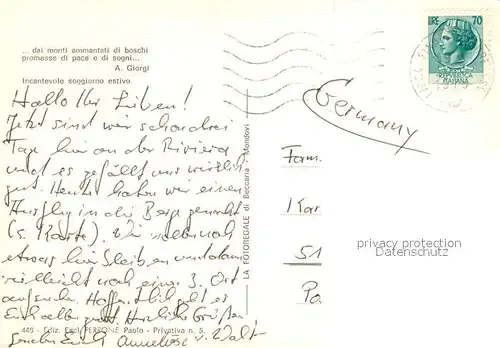 ... dai monti ammantati di boschi
promesse di pace e di sogni...
A. Giorgi
Incantevole soggiorno estivo
70
ITALIANA
Germany
Hallo Ihr Lieben!
Jetzt sind wir schon drei
Tage hier an der Riviera
und es gefällt uns wirklich
gut. Heute haben wir einen
Ausflug in die Berge gemacht
(s. Karte). Wir wollen noch
etwas hier bleiben und dann
vielleicht noch einen 3. Ort
aufsuchen. Hoffentlich geht es
Euch allen gut. Herzliche Grüße
Euch Anneliese u. Walt
Fam.
Kar
51
Pa
LA FOTOREGALE di Beccaria - Mondovì
privacy protection
Datenschutz
446 - Ediz. Escl. PERSONE Paolo - Privativa n. 5